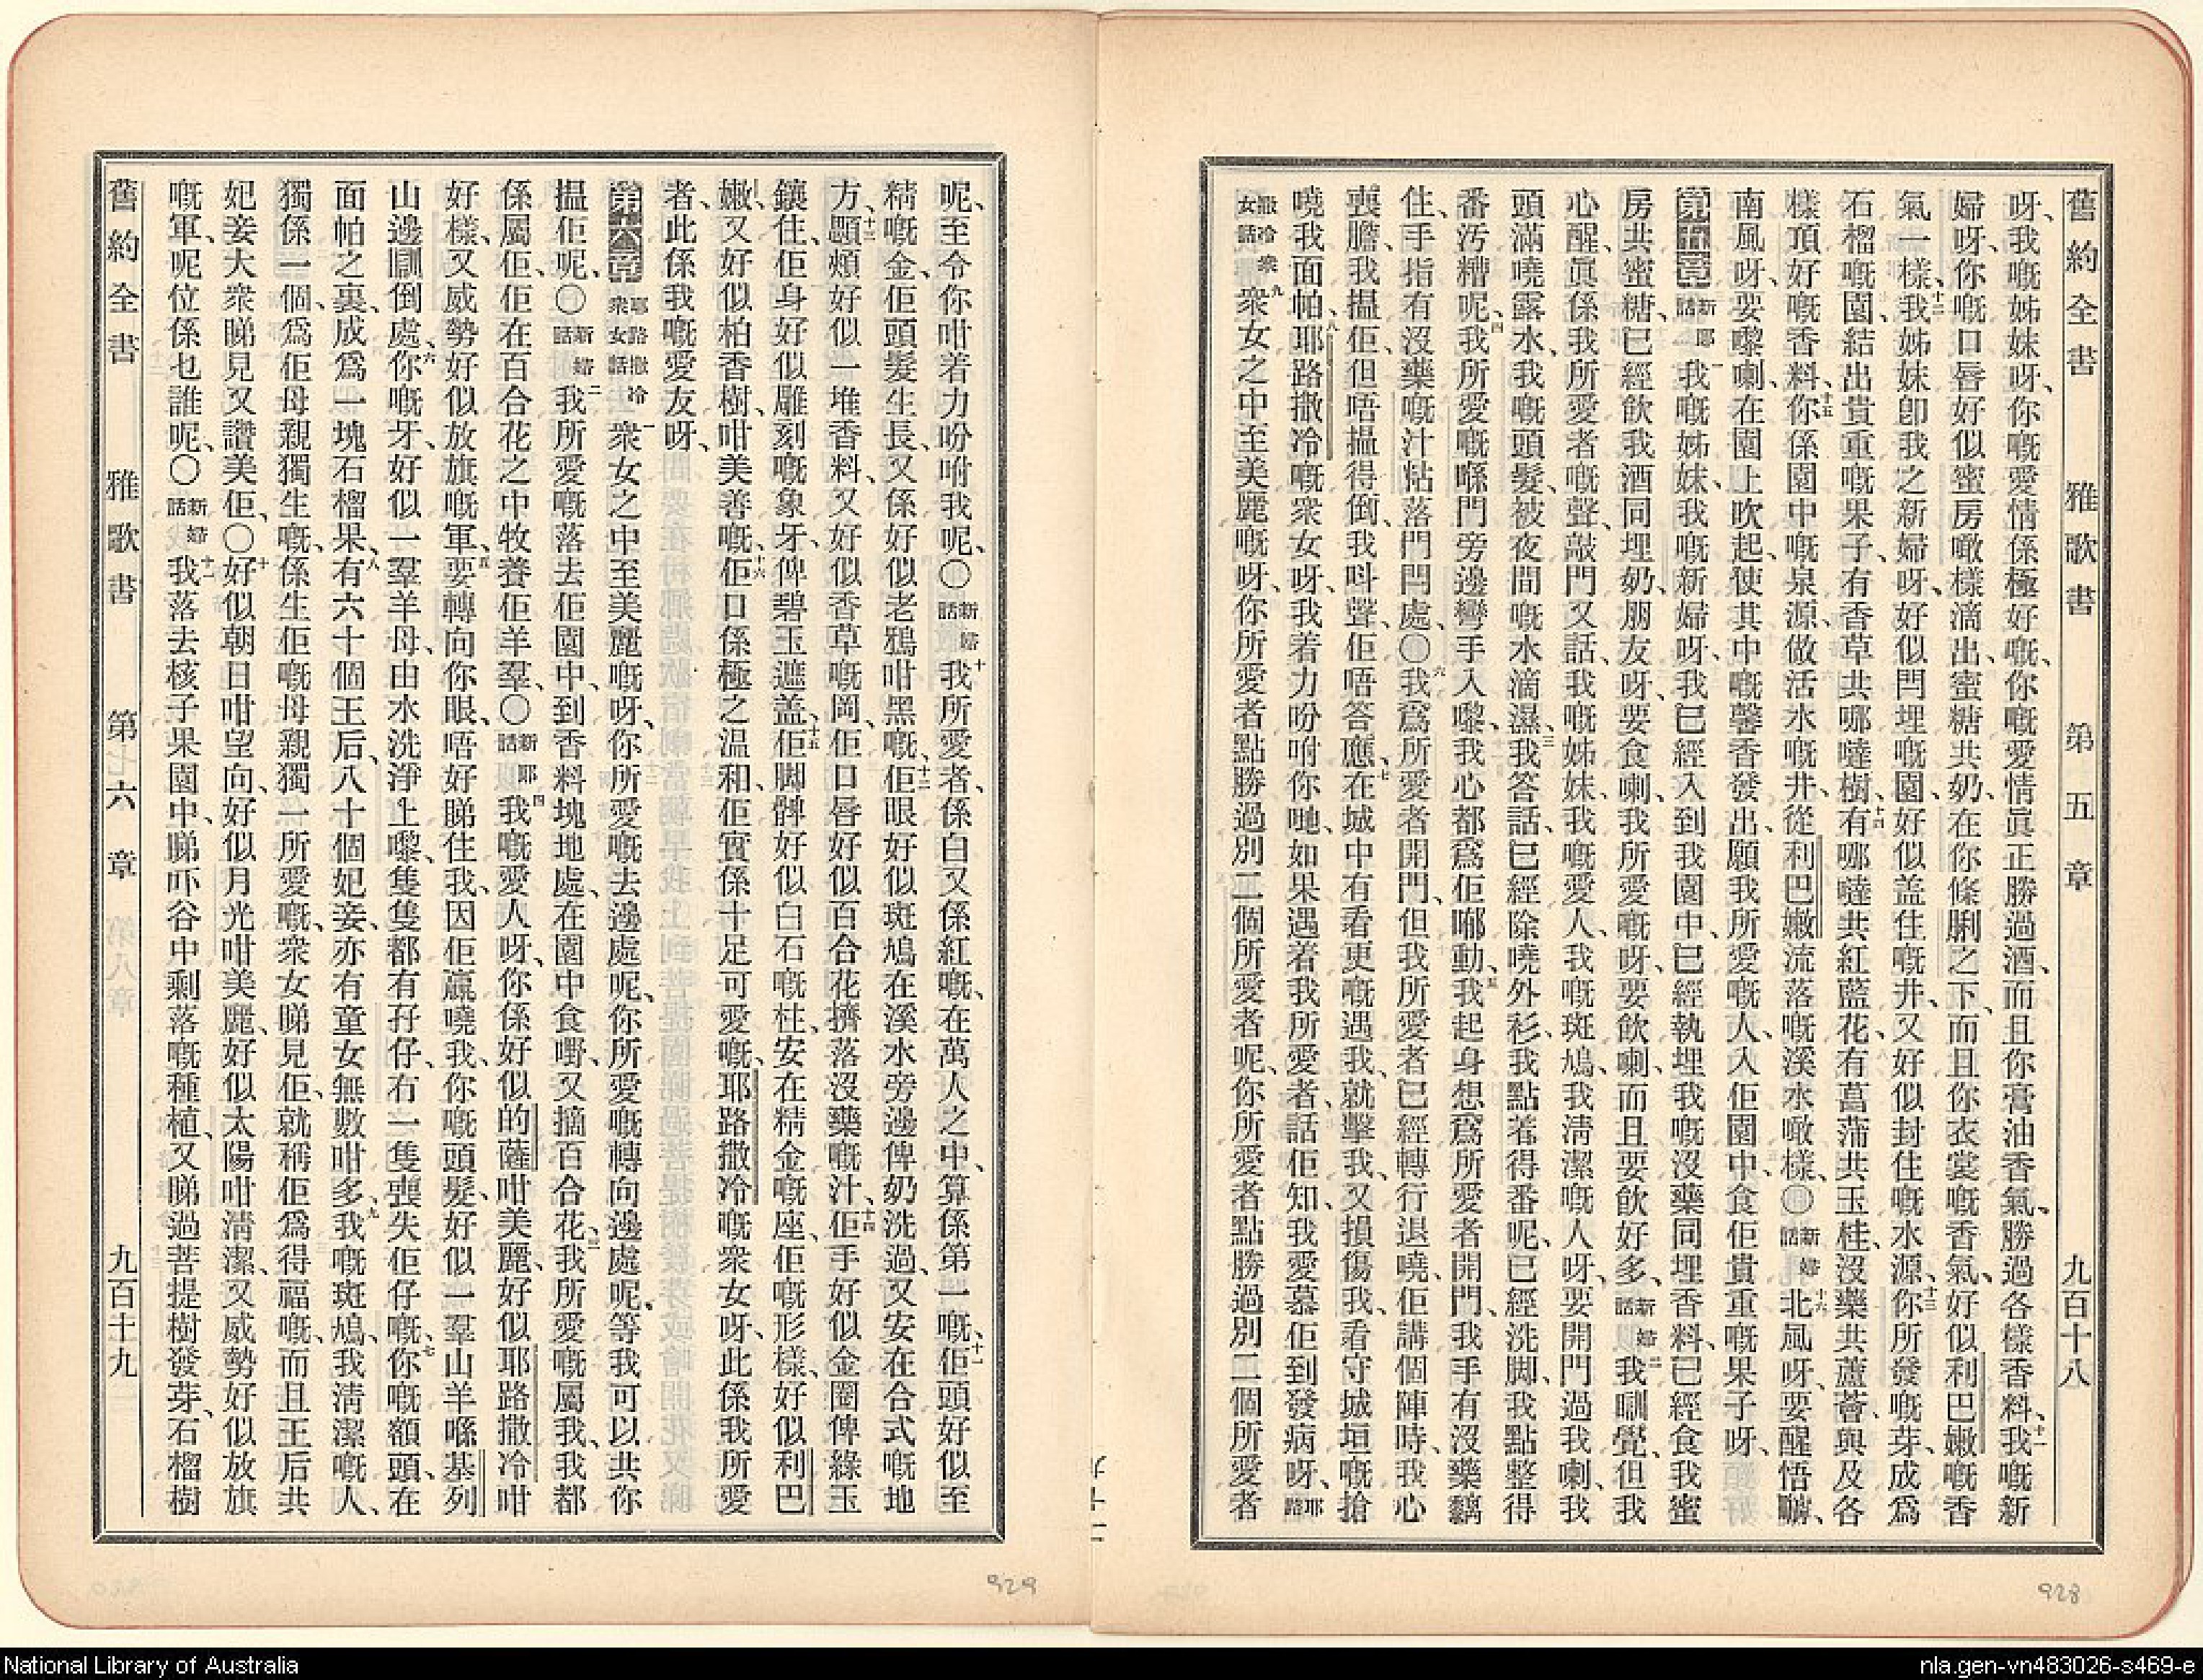 舊約全書　雅歌書　第五章　九百十八
呀、我嘅姊妹呀、你嘅愛情係極好嘅、你嘅愛情眞正勝過酒、而且你膏油香氣、勝過各樣香料、十一我嘅新
婦呀、你嘅口唇好似蜜房噉樣滴出、蜜糖共奶、在你條脷之下、而且你衣裳嘅香氣、好似利巴嫩嘅香
氣一樣、十二我姊妹卽我之新婦呀、好似閂埋嘅園、好似盖住嘅井、又好似封住嘅水源、十三你所發嘅芽、成爲
石榴嘅園、結出貴重嘅果子、有香草共哪噠樹、十四有哪噠共紅藍花、有菖蒲共玉桂、沒藥共蘆薈、與及各
樣頂好嘅香料、十五你係園中嘅泉源、做活水嘅井、從利巴嫩流落嘅溪水噉樣、〇新婦話十六北風呀、要醒悟嚹、
南風呀、要嚟喇、在園上吹起、使其中嘅馨香發出、願我所愛嘅人、入佢園中、食佢貴重嘅果子呀、
第五章 新郎話一我嘅姊妹、我嘅新婦呀、我已經入到我園中、已經執埋我嘅沒藥同埋香料、已經食我蜜
房共蜜糖、已經飲我酒同埋奶、朋友呀、要食喇、我所愛嘅呀、要飲喇、而且要飲好多、新婦話二我瞓覺、但我
心醒、眞係我所愛者嘅聲、敲門又話、我嘅姊妹、我嘅愛人、我嘅斑鳩、我淸潔嘅人呀、要開門過我喇、我
頭滿嘵露水、我嘅頭髮、被夜間嘅水滴濕、三我答話、已經除嘵外衫、我點着得番呢、已經洗脚、我點整得
番汚糟呢、四我所愛嘅喺門旁邊彎手入嚟、我心都爲佢郁動、五我起身想爲所愛者開門、我手有沒藥䊀
住、手指有沒藥嘅汁粘落門閂處、〇六我爲所愛者開門、但我所愛者已經轉行退嘵、佢講個陣時、我心
喪膽、我搵佢但唔搵得倒、我呌聲、佢唔答應、七在城中有看更嘅遇我、就擊我、又損傷我、看守城垣嘅搶
嘵我面帕、八耶路撒冷嘅衆女呀、我着力吩咐你哋、如果遇着我所愛者、話佢知、我愛慕佢到發病呀、耶路
撒冷衆女話九衆女之中至美麗嘅呀、你所愛者點勝過別二個所愛者呢、你所愛者點勝過別二個所愛者
呢、至令你咁着力吩咐我呢、〇新婦話十我所愛者、係白又係紅嘅、在萬人之中、算係第一嘅、十一佢頭好似至
精嘅金、佢頭髮生長、又係好似老鴉咁黑嘅、十二佢眼好似斑鳩在溪水旁邊、俾奶洗過、又安在合式嘅地
方、十三顋頰好似一堆香料、又好似香草嘅岡、佢口唇好似百合花、擠落沒藥嘅汁、十四佢手好似金圈俾綠玉
鑲住、佢身好似雕刻嘅象牙、俾碧玉遮盖、十五佢脚髀好似白石嘅柱、安在精金嘅座、佢嘅形樣、好似利巴
嫩、又好似柏香樹、咁美善嘅、十六佢口係極之温和、佢實係十足可愛嘅、耶路撒冷嘅衆女呀、此係我所愛
者、此係我嘅愛友呀、
第六章 耶路撒冷衆女話一衆女之中至美麗嘅呀、你所愛嘅去邊處呢、你所愛嘅轉向邊處呢、等我可以共你
搵佢呢、〇新婦話二我所愛嘅落去佢園中、到香料塊地處、在園中食嘢、又摘百合花、三我所愛嘅屬我、我都
係屬佢、佢在百合花之中牧養佢羊羣、〇新郎話四我嘅愛人呀、你係好似的薩咁美麗、好似耶路撒冷咁
好樣、又威勢好似放旗嘅軍、五要轉向你眼、唔好睇住我、因佢贏嘵我、你嘅頭髮、好似一羣山羊喺基列
山邊瞓倒處、六你嘅牙、好似一羣羊母、由水洗淨上嚟、隻隻都有孖仔、冇一隻喪失佢仔嘅、七你嘅額頭、在
面帕之裏、成爲一塊石榴果、八有六十個王后、八十個妃妾、亦有童女無數咁多、九我嘅斑鳩、我淸潔嘅人、
獨係一個、爲佢母親獨生嘅、係生佢嘅母親獨一所愛嘅、衆女睇見佢、就稱佢爲得福嘅、而且王后共
妃妾大衆睇見又讚美佢、〇十好似朝日咁望向、好似月光咁美麗、好似太陽咁淸潔、又威勢好似放旗
嘅軍、呢位係乜誰呢、〇新婦話十一我落去核子果園中、睇吓谷中剩落嘅種植、又睇過菩提樹發芽、石榴樹
舊約全書　雅歌書　第六章　九百十九
929
928
National Library of Australia
nla.gen-vn483026-s469-e